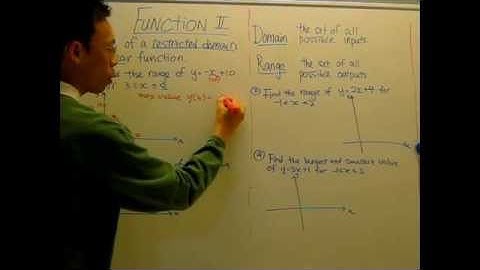 FUNCTION II
of a restricted domain
ar function.
the range of y=-x+10
3≤x≤
max value y( )=
Domain the set of all
possible inputs
Range the set of all
possible outputs
③ Find the range of y=2x+4 for
-1<x≤2
④ Find the largest and smallest value
of y=3x+1 for
x
x
x